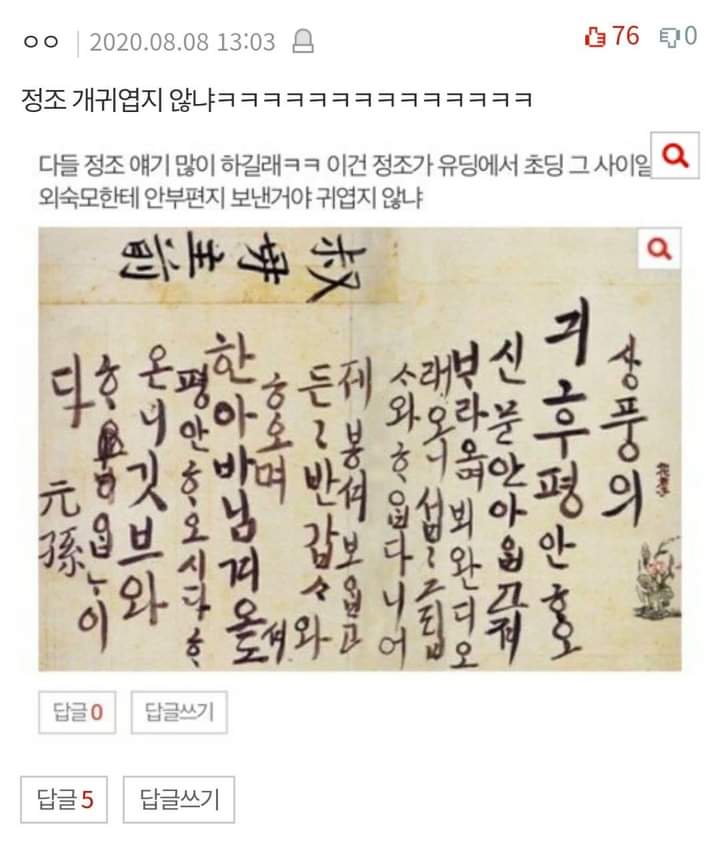 ㅇㅇ 2020.08.08 13:03 76 0
정조 개귀엽지 않냐ㅋㅋㅋㅋㅋㅋㅋㅋㅋㅋㅋㅋㅋㅋ
다들 정조 얘기 많이 하길래ㅋㅋ 이건 정조가 유딩에서 초딩 그 사이일
외숙모한테 안부편지 보낸거야 귀엽지 않냐
叔母主前
상풍의
긔후평안ᄒᆞ오
신문안아ᄋᆞᆸ고져
ᄇᆞ라오며 뵈완디오
래오니섭〻그립
ᄉᆞ와ᄒᆞᄋᆞᆸ다니어
제봉셔보ᄋᆞᆸ고
든〻반갑ᄉᆞ와
ᄒᆞ오며
한아바님겨오셔도
평안ᄒᆞ오시다ᄒᆞ
온니깃브와
ᄒᆞᄋᆞᆸᄂᆞ이
다
元孫
답글 0 답글쓰기
답글 5 답글쓰기